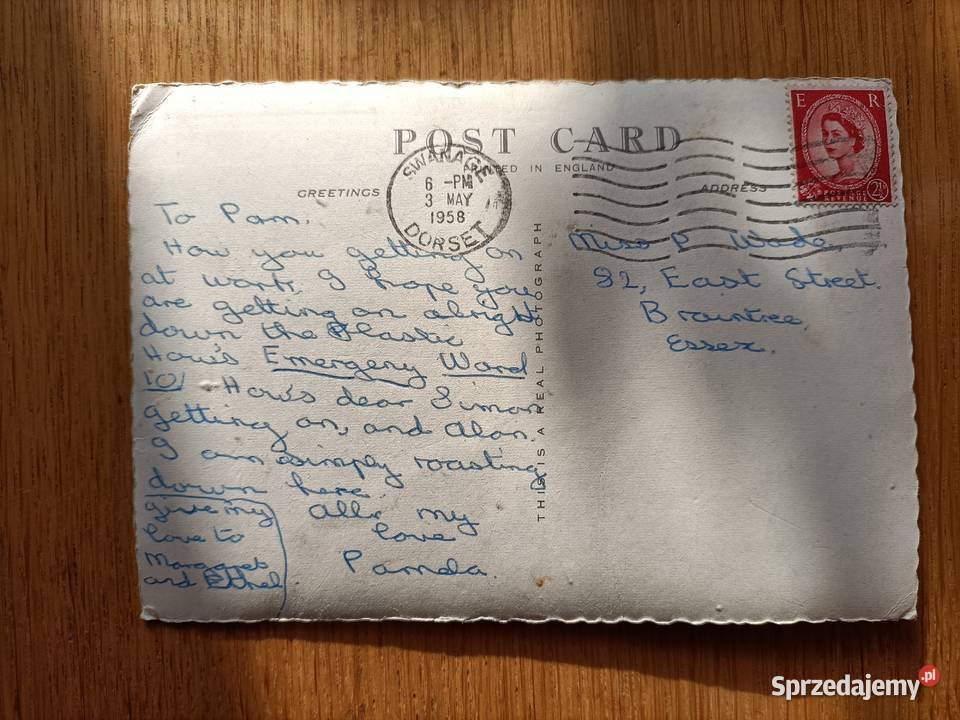 POST CARD
PRINTED IN ENGLAND
GREETINGS
ADDRESS
SWANAGE
6 - PM
3 MAY
1958
DORSET
E R
POSTAGE
REVENUE
2½
To Pam.
How you getting on
at work, I hope you
are getting on alright
down the Plastic
How's Emergery Ward
10! How's dear Simon
getting on, and Alan.
I am simply roasting
down here.
All my
love
Pamela.
give my
love to
Margaret
and Ethel
THIS IS A REAL PHOTOGRAPH
Miss P Wade,
82, East Street.
Braintree,
Essex.
Sprzedajemy.pl